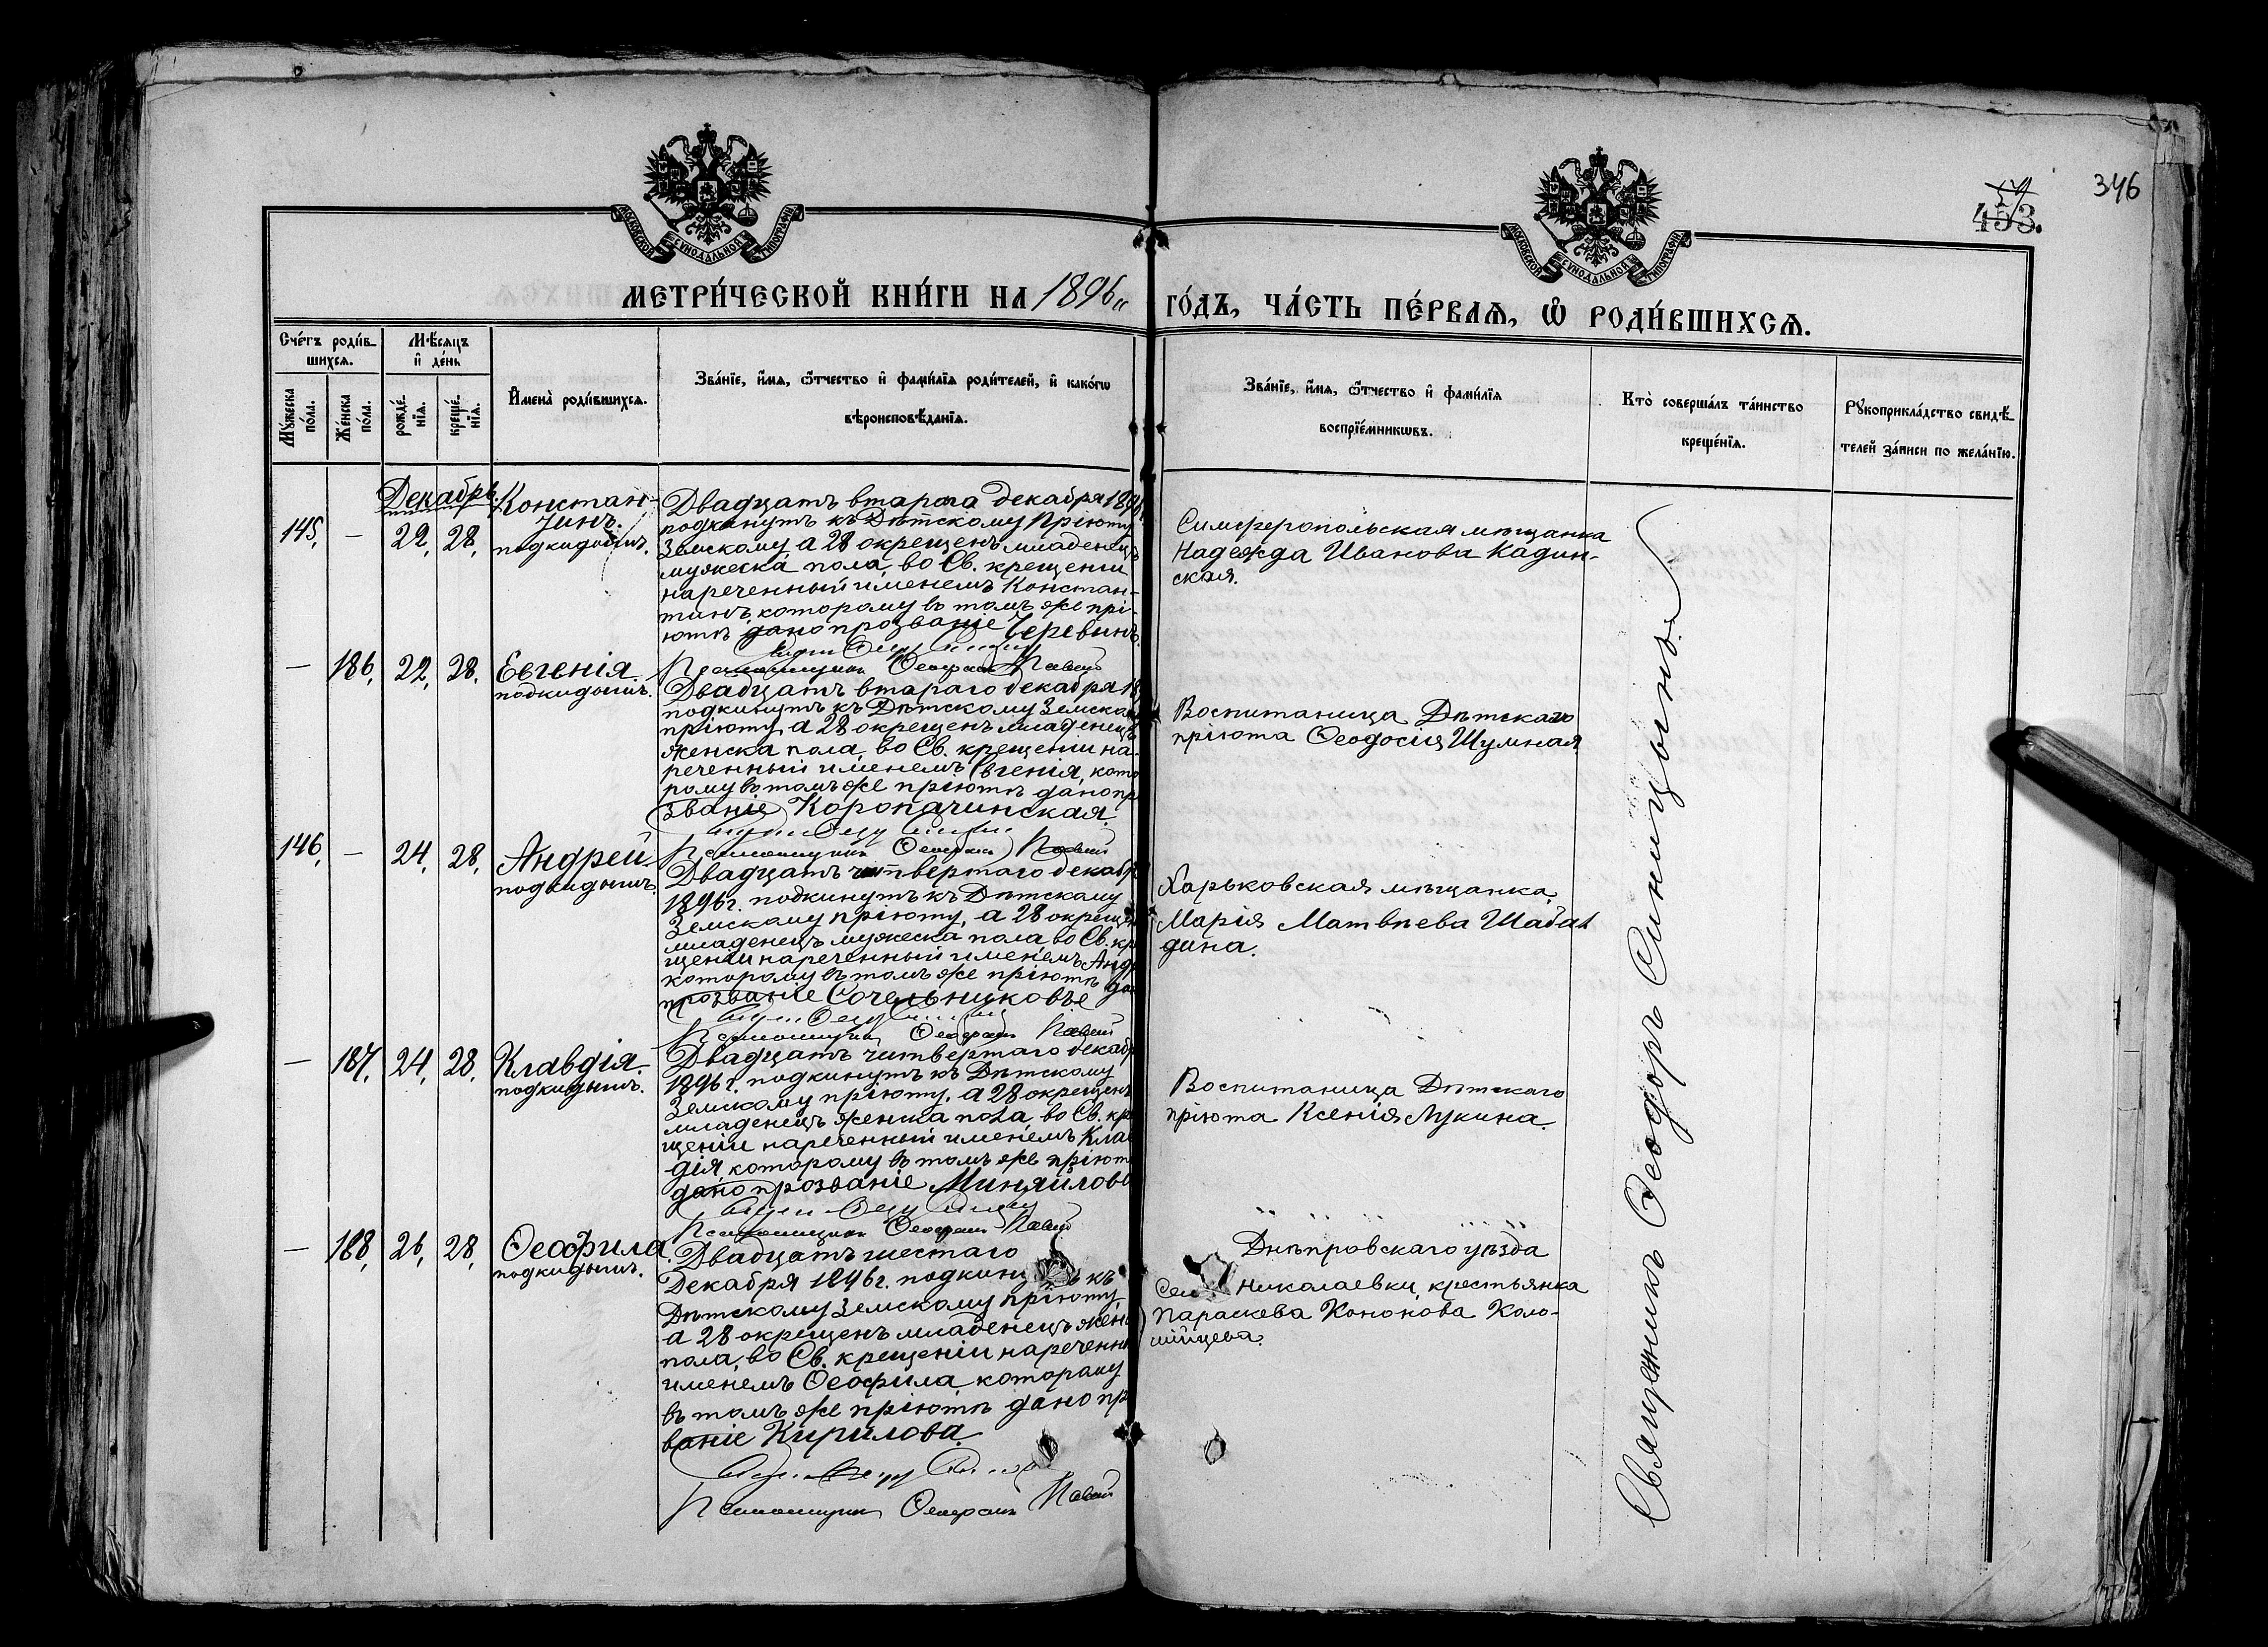 346
453.
МОСКОВСКОЙ СУНОДАЛЬНОЙ ТИПОГРАФІИ
МОСКОВСКОЙ СУНОДАЛЬНОЙ ТИПОГРАФІИ
МЕТРИ́ЧЕСКОЙ КНИ́ГИ НА 1896
ГО́ДЪ, ЧА́СТЬ ПЕ́РВАѦ, Ѡ҆ РОДИ́ВШИХСѦ.
Сче́тъ роди́в-
шихсѧ.
Мѣ́сѧцъ
и҆ де́нь
Мꙋ́жеска
по́ла.
Же́нска
по́ла.
рожде́-
нїѧ.
креще́-
нїѧ.
И҆мена̀ роди́вшихсѧ.
Зва́нїе, и҆́мѧ, ѻ҆́тчество и҆ фамѝлїѧ роди́телей, и҆ како́гѡ
вѣроисповѣ́данїѧ.
Зва́нїе, и҆́мѧ, ѻ҆́тчество и҆ фамѝлїѧ
воспрїе́мникѡвъ.
Кто̀ соверша́лъ та́инство
креще́нїѧ.
Рꙋкоприкла́дство свидѣ́-
телей за́писи по жела́нїю.
Декабрь.
145, — 22, 28,
Констан-
тинъ.
подкидышъ.
Двадцатъ второго декабря 1896
подкинутъ къ Дѣтскому Пріюту
Земскому, а 28 окрещенъ младенецъ
мужеска пола, во Св. крещеніи
нареченный именемъ Констан-
тинъ, которому въ томъ же прі-
ютѣ дано прозваніе Черевинъ
Псаломщикъ
Симферопольская мѣщанка
Надежда Иванова Кадин-
ская.
— 186, 22, 28,
Евгенія.
подкидышъ.
Двадцатъ втараго декабря 18
подкинутъ къ Дѣтскому Земско
пріюту, а 28 окрещенъ младенецъ
женска пола, во Св. крещеніи на-
реченный именемъ Евгенія, кото
рому въ томъ же пріютѣ дано пр
званіе Коропачинская.
Псаломщикъ
Воспитаница Дѣтскаго
пріюта Ѳеодосія Шумная
146, — 24, 28,
Андрей
подкидышъ.
Двадцатъ четвертаго декабр
1896 г. подкинутъ къ Дѣтскому
Земскому пріюту, а 28 окрещен
младенецъ мужеска пола, во Св. кр
щеніи нареченный именемъ Андр
которому въ томъ же пріютѣ да
прозваніе Сочельниковъ
Псаломщикъ
Харьковская мѣщанка
Марія Матвѣева Шабал
дина.
— 187, 24, 28,
Клавдія.
подкидышъ.
Двадцатъ читвертаго декабр
1896 г. подкинутъ къ Дѣтскому
Земскому пріюту, а 28 окрещенъ
младенецъ женска пола, во Св. кре
щеніи нареченный именемъ Клав
дія, которому въ томъ же пріют
дано прозваніе Миняйлово
Псаломщикъ
Воспитаница Дѣтскаго
пріюта Ксенія Лукина.
— 188, 26, 28,
Ѳеофила
подкидышъ.
Двадцатъ шестаго
Декабря 1896 г. подкин къ
Дѣтскому Земскому пріюту,
а 28 окрещенъ младенецъ жен
пола, во Св. крещеніи нареченн
именемъ Ѳеофила, которому
въ томъ же пріютѣ дано пр
ваніе Кирилова.
Псаломщикъ
Днѣпровскаго уѣзда
Сел Николаевки, крестьянка
Параскева Кононова Коло-
мийцева.
Священникъ Ѳеодоръ Синицынъ